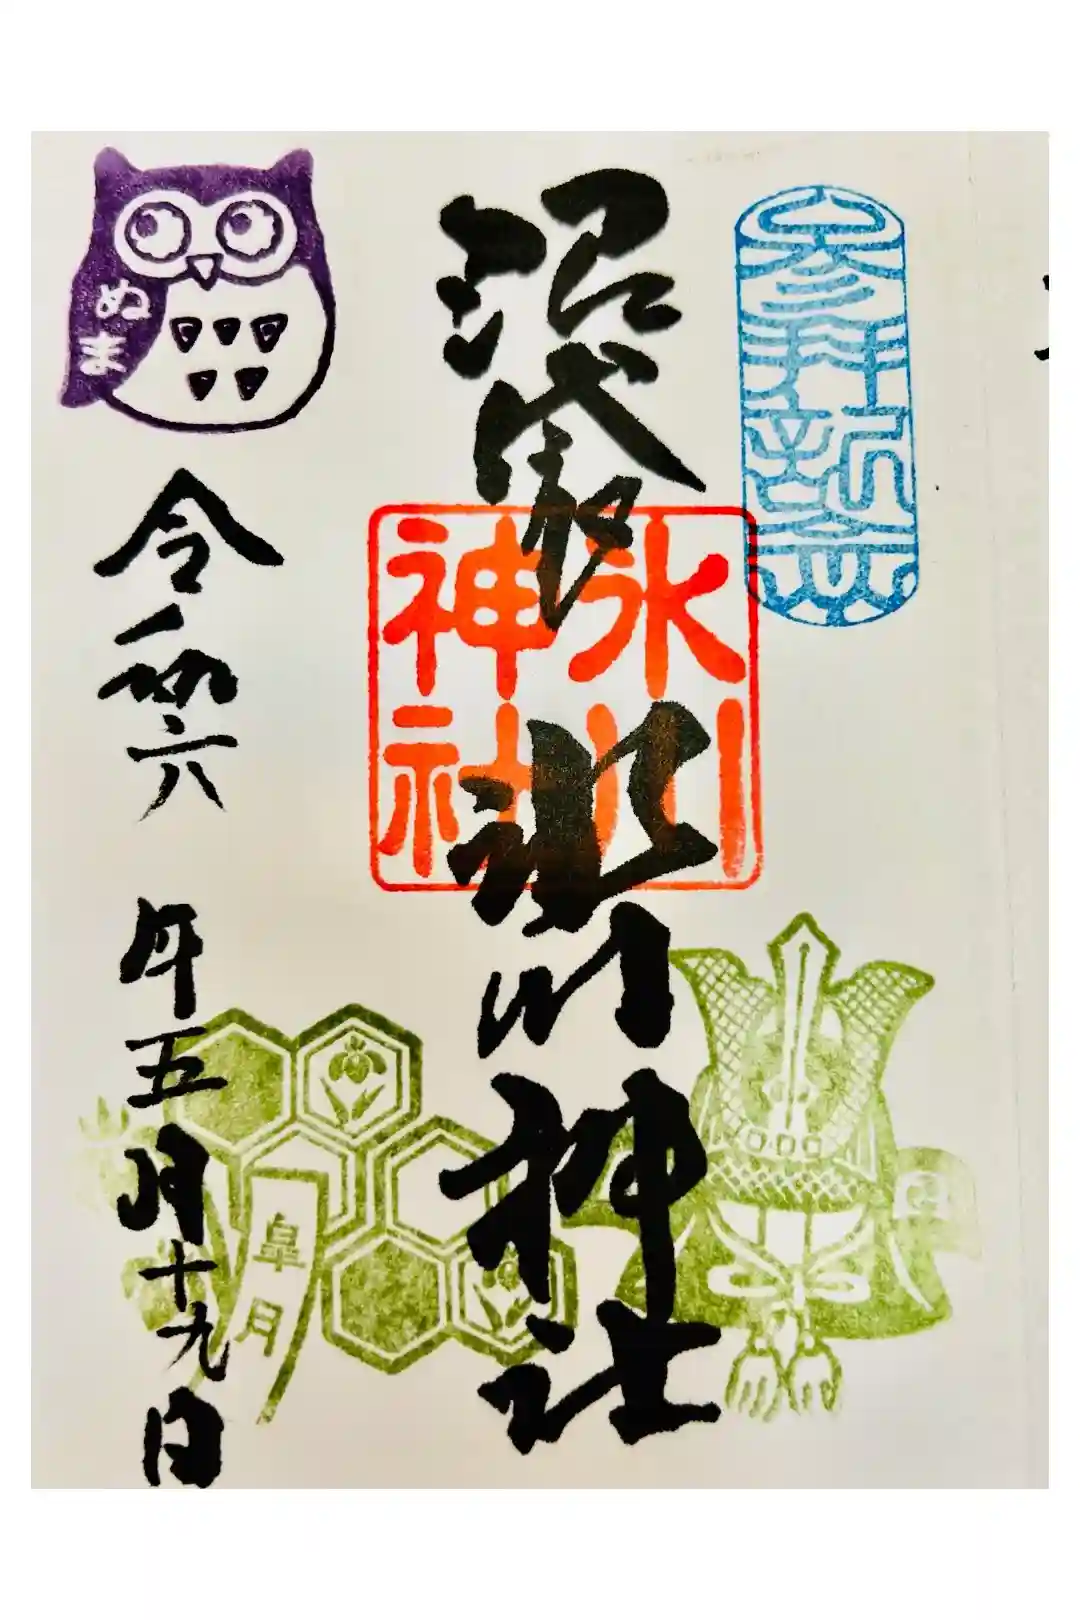 参拝新益
沼袋
氷川神社
氷川
神社
ぬま
令和六
年五月十九日
皐月